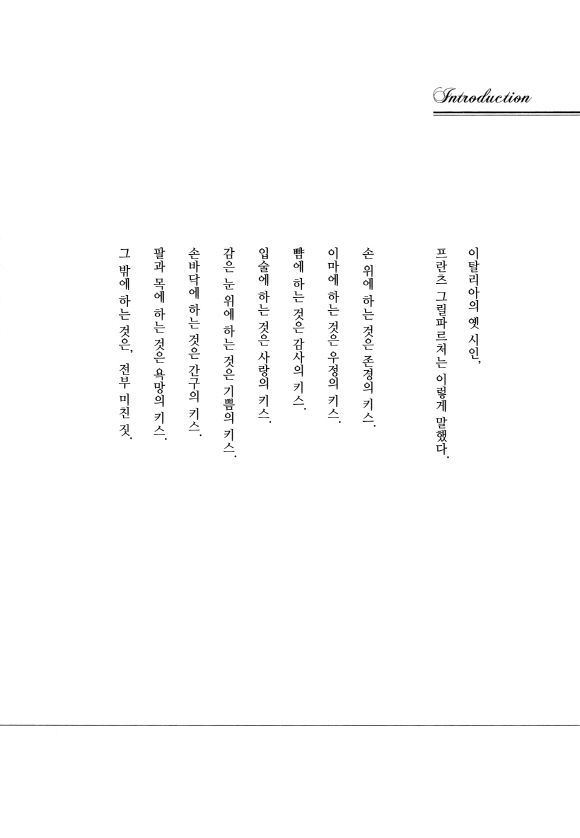 Introduction
이탈리아의 옛 시인,
프란츠 그릴파르처는 이렇게 말했다.
손 위에 하는 것은 존경의 키스.
이마에 하는 것은 우정의 키스.
뺨에 하는 것은 감사의 키스.
입술에 하는 것은 사랑의 키스.
감은 눈 위에 하는 것은 기쁨의 키스.
손바닥에 하는 것은 간구의 키스.
팔과 목에 하는 것은 욕망의 키스.
그 밖에 하는 것은, 전부 미친 짓.